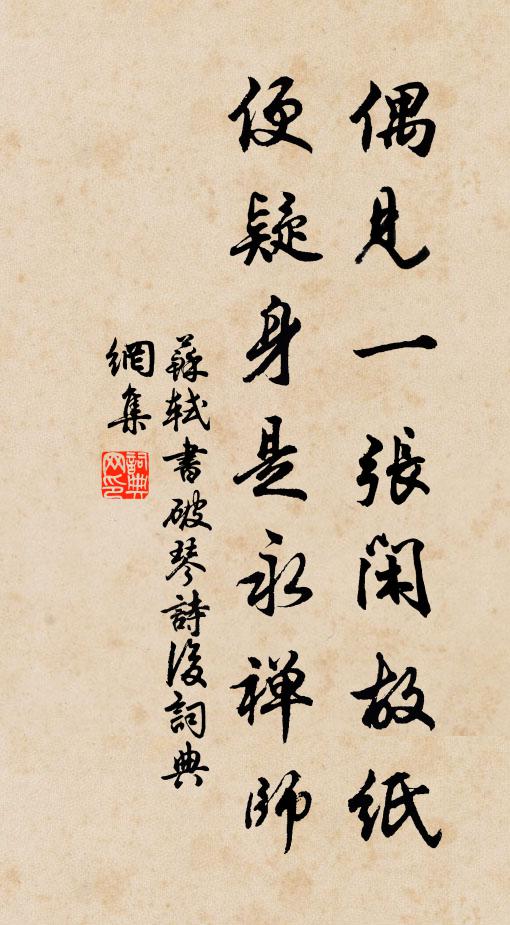 偶見一張閑故紙
便疑身是永禅師
蘇軾書破琴詩後詞典
網集
詞典
网印